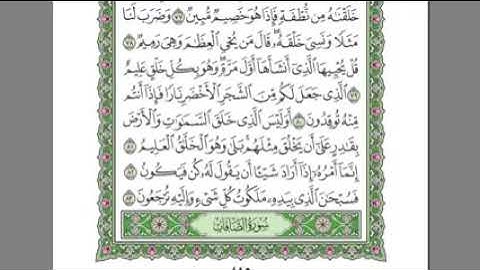 خَلَقْنَٰهُ مِن نُّطْفَةٍ فَإِذَا هُوَ خَصِيمٌ مُّبِينٌ ٧٧ وَضَرَبَ لَنَا
مَثَلًا وَنَسِيَ خَلْقَهُۥ قَالَ مَن يُحْيِ ٱلْعِظَٰمَ وَهِيَ رَمِيمٌ ٧٨
قُلْ يُحْيِيهَا ٱلَّذِيٓ أَنشَأَهَآ أَوَّلَ مَرَّةٍ وَهُوَ بِكُلِّ خَلْقٍ عَلِيمٌ ٧٩
ٱلَّذِي جَعَلَ لَكُم مِّنَ ٱلشَّجَرِ ٱلْأَخْضَرِ نَارًا فَإِذَآ أَنتُم
مِّنْهُ تُوقِدُونَ ٨٠ أَوَلَيْسَ ٱلَّذِي خَلَقَ ٱلسَّمَٰوَٰتِ وَٱلْأَرْضَ
بِقَٰدِرٍ عَلَىٰٓ أَن يَخْلُقَ مِثْلَهُم بَلَىٰ وَهُوَ ٱلْخَلَّٰقُ ٱلْعَلِيمُ ٨١
إِنَّمَآ أَمْرُهُۥٓ إِذَآ أَرَادَ شَيْـًٔا أَن يَقُولَ لَهُۥ كُن فَيَكُونُ ٨٢
فَسُبْحَٰنَ ٱلَّذِي بِيَدِهِۦ مَلَكُوتُ كُلِّ شَيْءٍ وَإِلَيْهِ تُرْجَعُونَ ٨٣
سُورَةُ الصَّافَّاتِ